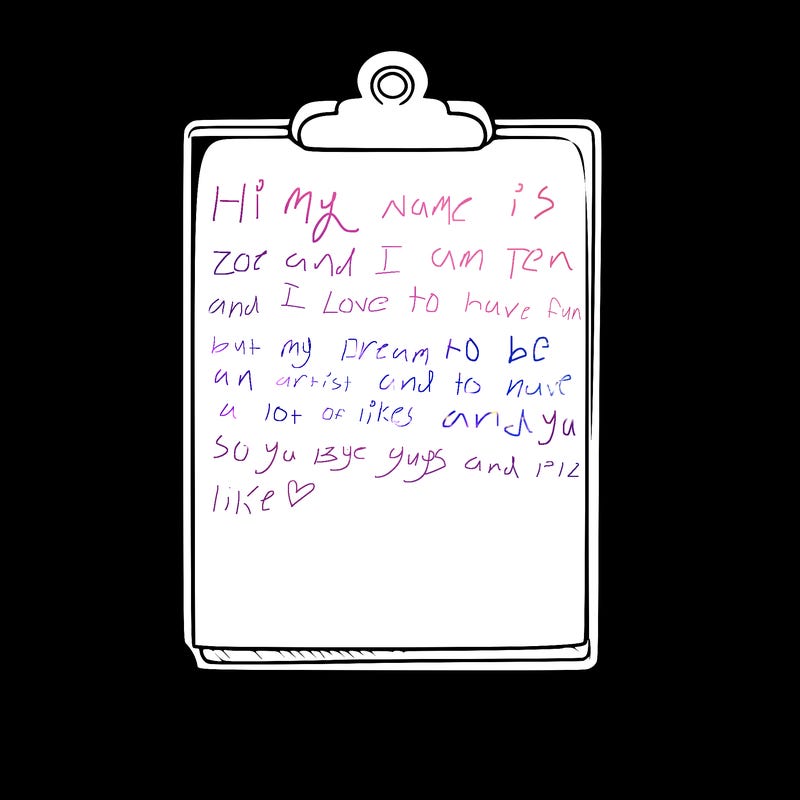 Hi my name is
zoe and I am Ten
and I Love to have fun
but my Dream to be
an artist and to have
a lot of likes and ya
so ya Bye guys and Plz
like♡